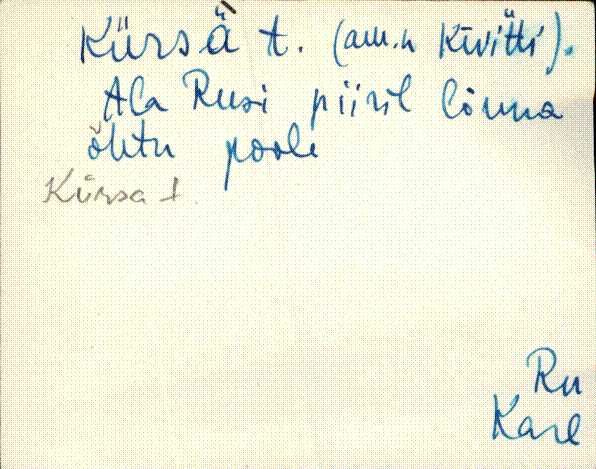 Kürsä t. (am.n Kivitti).
Ala Rusi piiril lõuna
õhtu pool
Kürsa t
Ru
Kare